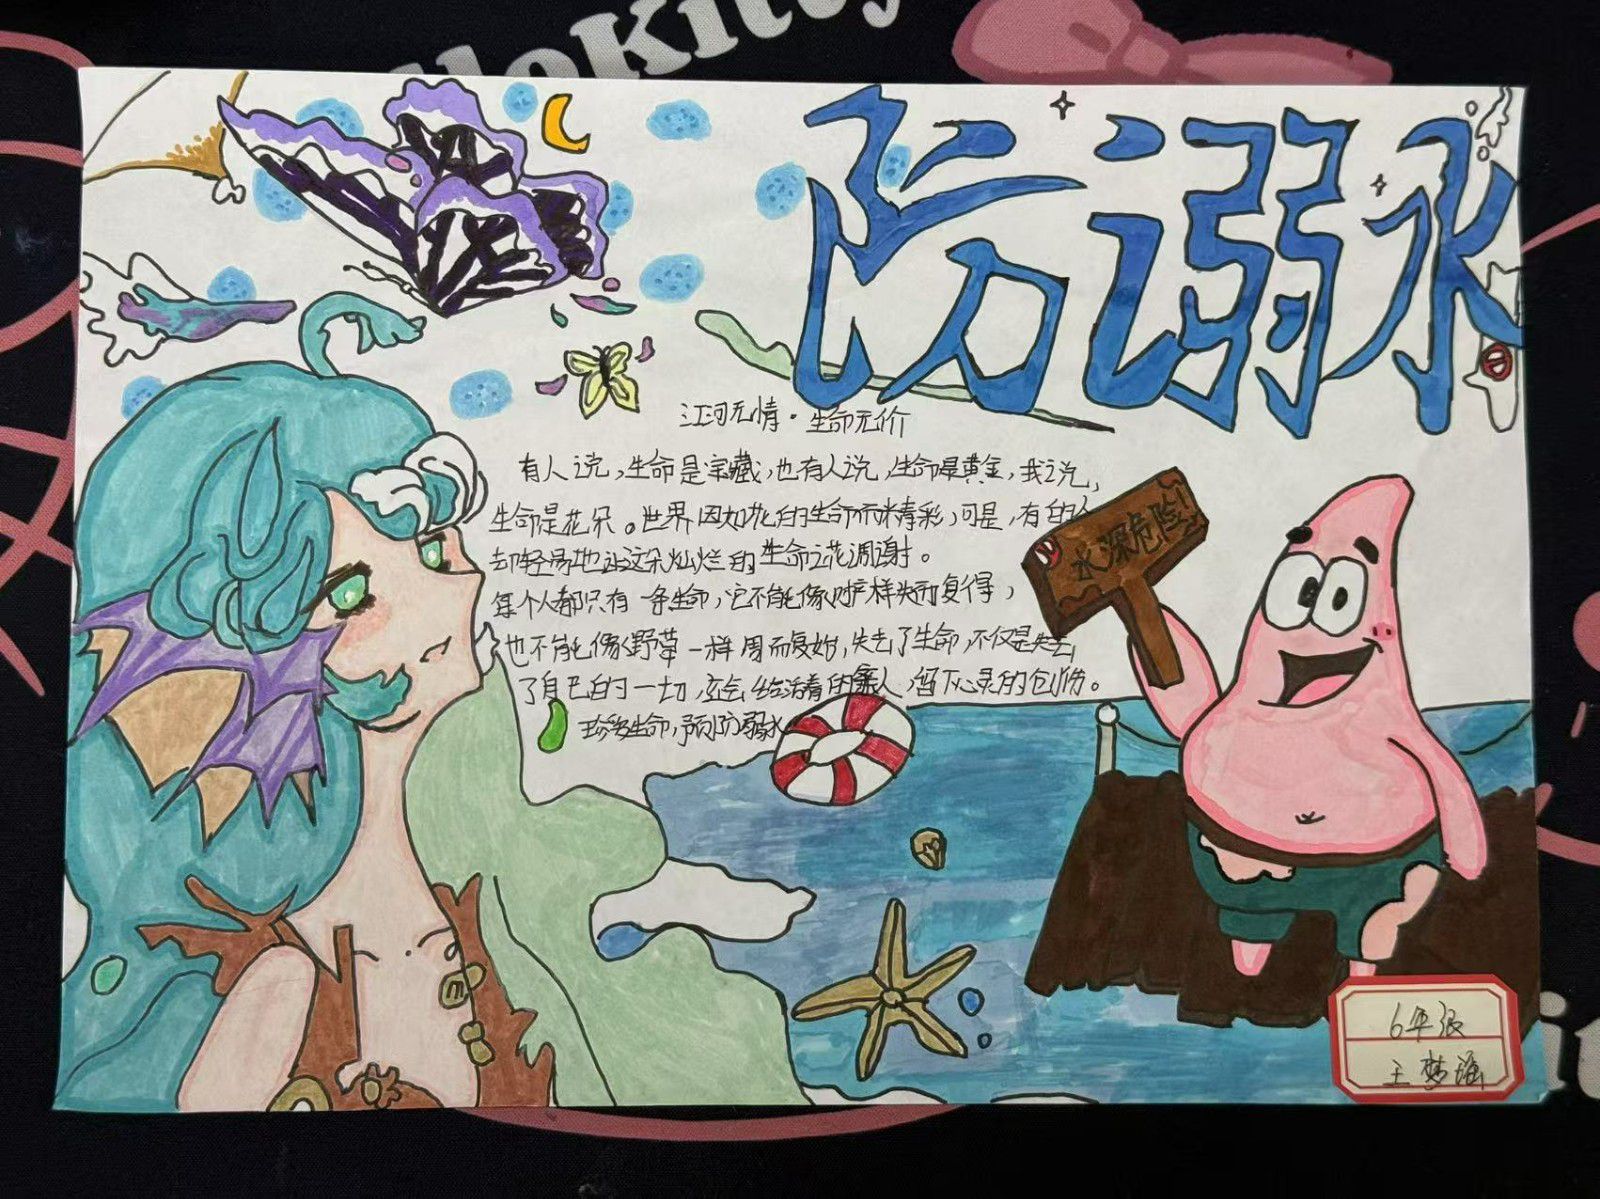 HelloKitty
防溺水
江河无情·生命无价
有人说,生命是宝藏,也有人说,生命是黄金,我说,
生命是花朵。世界因如花的生命而精彩,可是,有的人
却轻易地让这朵灿烂的生命之花凋谢。
每个人都只有一条生命,它不能像财产样失而复得,
也不能像野草一样周而复始,失去了生命,不仅是失去
了自己的一切,立会给活着的亲人,留下心灵的创伤。
珍爱生命,预防溺水
水深危险!
6年级
王梦瑶